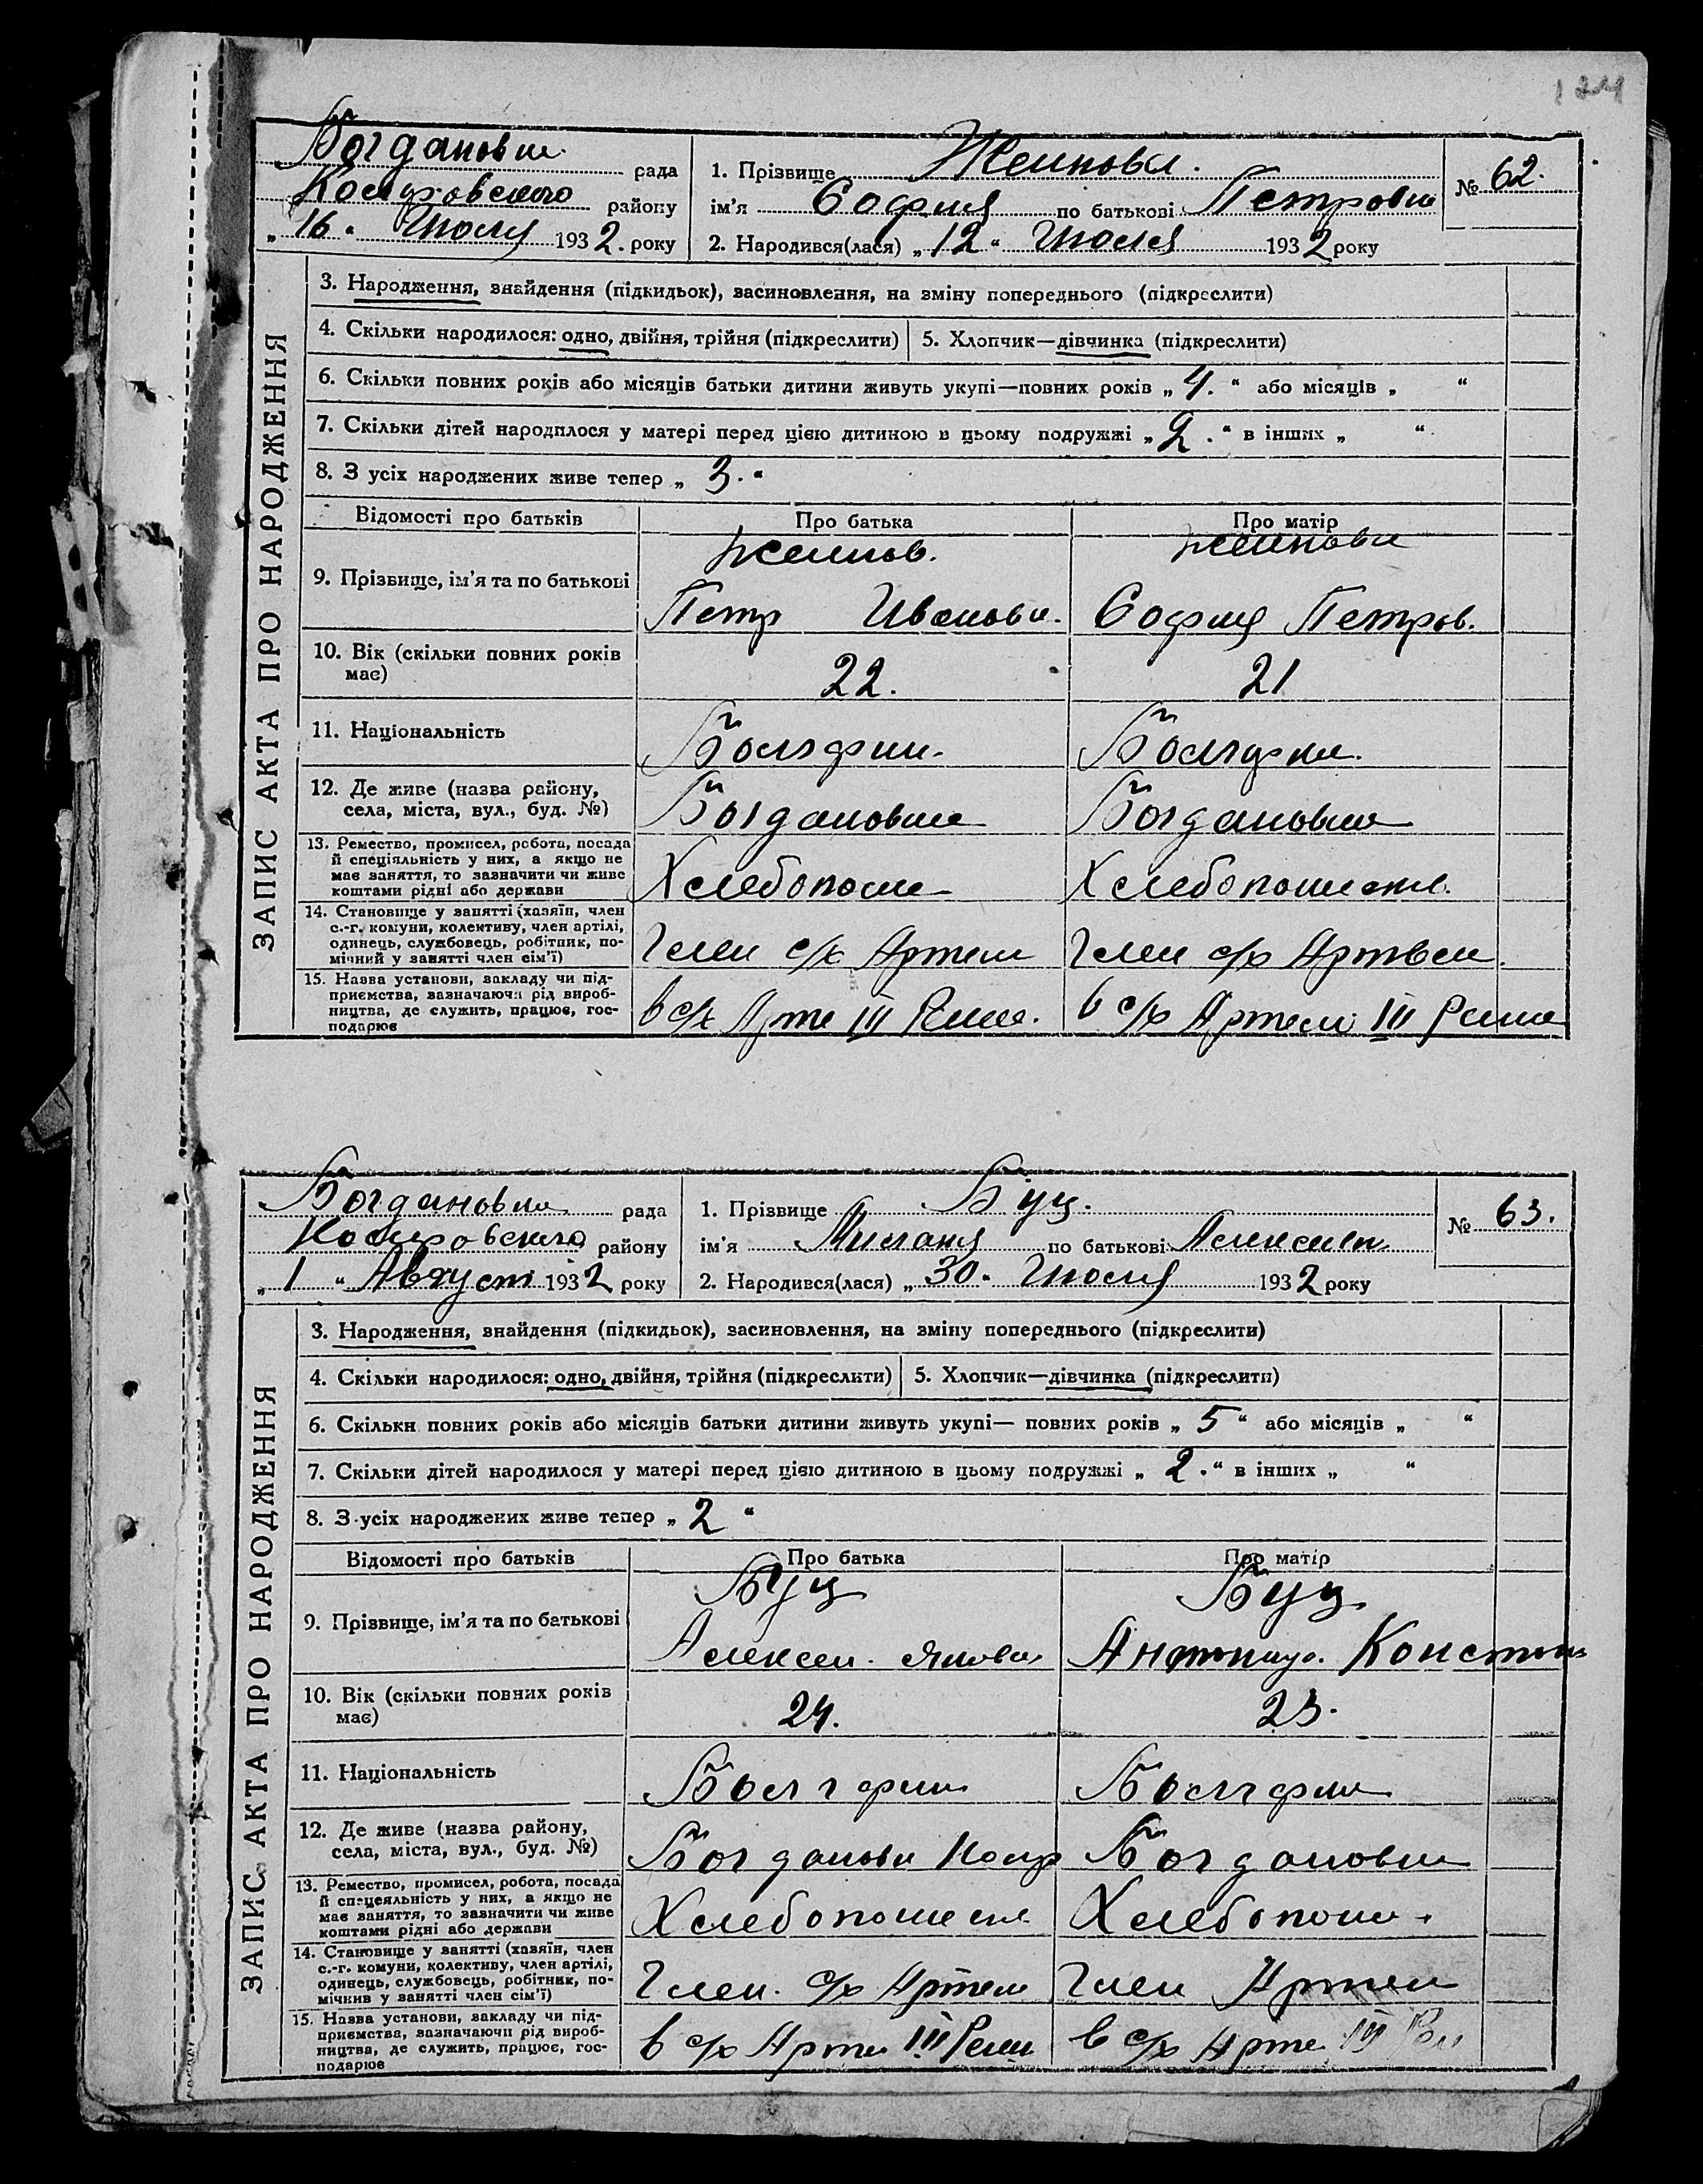 124
Богдановш рада
Коларовского району
„16“ Июля 1932. року
1. Прізвище Жеинова.
ім'я София по батькові Петровн
№ 62.
2. Народився(лася) „12“ Июля 1932 року
ЗАПИС АКТА ПРО НАРОДЖЕННЯ
3. Народження, знайдення (підкидьок), засиновлення, на зміну попереднього (підкреслити)
4. Скільки народилося: одно, двійня, трійня (підкреслити) 5. Хлопчик—дівчинка (підкреслити)
6. Скільки повних років або місяців батьки дитини живуть укупі—повних років „4.“ або місяців „ “
7. Скільки дітей народилося у матері перед цією дитиною в цьому подружжі „2.“ в інших „ “
8. З усіх народжених живе тепер „3.“
Відомості про батьків Про батька Про матір
9. Прізвище, ім'я та по батькові
Жеинов.
Петр Иванови.
Жеинова
София Петров.
10. Вік (скільки повних років
має)
22. 21
11. Національність Болгарин. Болгарин.
12. Де живе (назва району,
села, міста, вул., буд. №)
Богдановш Богдановш
13. Ремество, промисел, робота, посада
й спеціяльність у них, а якщо не
має заняття, то зазначити чи живе
коштами рідні або держави
Хлебопаш Хлебопашест.
14. Становище у занятті (хазяїн, член
с.-г. комуни, колективу, член артілі,
одинець, службовець, робітник, по-
мічний у занятті член сім'ї)
Член с/х Артели Член с/х Артели.
15. Назва установи, закладу чи під-
приємства, зазначаючи рід вироб-
ництва, де служить, працює, гос-
подарює
в с/х Арте III Реш. в с/х Артели III Реш
Богдановш рада
Коларовского району
„1“ Август 1932 року
1. Прізвище Буц.
ім'я Милания по батькові Алексеев
№ 63.
2. Народився(лася) „30.“ Июля 1932 року
ЗАПИС АКТА ПРО НАРОДЖЕННЯ
3. Народження, знайдення (підкидьок), засиновлення, на зміну попереднього (підкреслити)
4. Скільки народилося: одно, двійня, трійня (підкреслити) 5. Хлопчик—дівчинка (підкреслити)
6. Скільки повних років або місяців батьки дитини живуть укупі— повних років „5“ або місяців „ “
7. Скільки дітей народилося у матері перед цією дитиною в цьому подружжі „2.“ в інших „ “
8. З усіх народжених живе тепер „2“
Відомості про батьків Про батька Про матір
9. Прізвище, ім'я та по батькові
Буц
Алексеи. Якови
Буц
Констан
10. Вік (скільки повних років
має)
24. 23.
11. Національність Болгарин Болгарин
12. Де живе (назва району,
села, міста, вул., буд. №)
Богданови Колар Богдановш
13. Ремество, промисел, робота, посада
й спецеяльність у них, а якщо не
має заняття, то зазначити чи живе
коштами рідні або держави
Хлебопашест Хлебопаш.
14. Становище у занятті (хазяїн, член
с.-г. комуни, колективу, член артілі,
одинець, службовець, робітник, по-
мічнив у занятті член сім'ї)
Член. с/х Артели Член Артели
15. Назва установи, закладу чи під-
приємства, зазначаючи рід вироб-
ництва, де служить, працює, гос-
подарює
в с/х Арте III Реши в с/х Арте III Реш